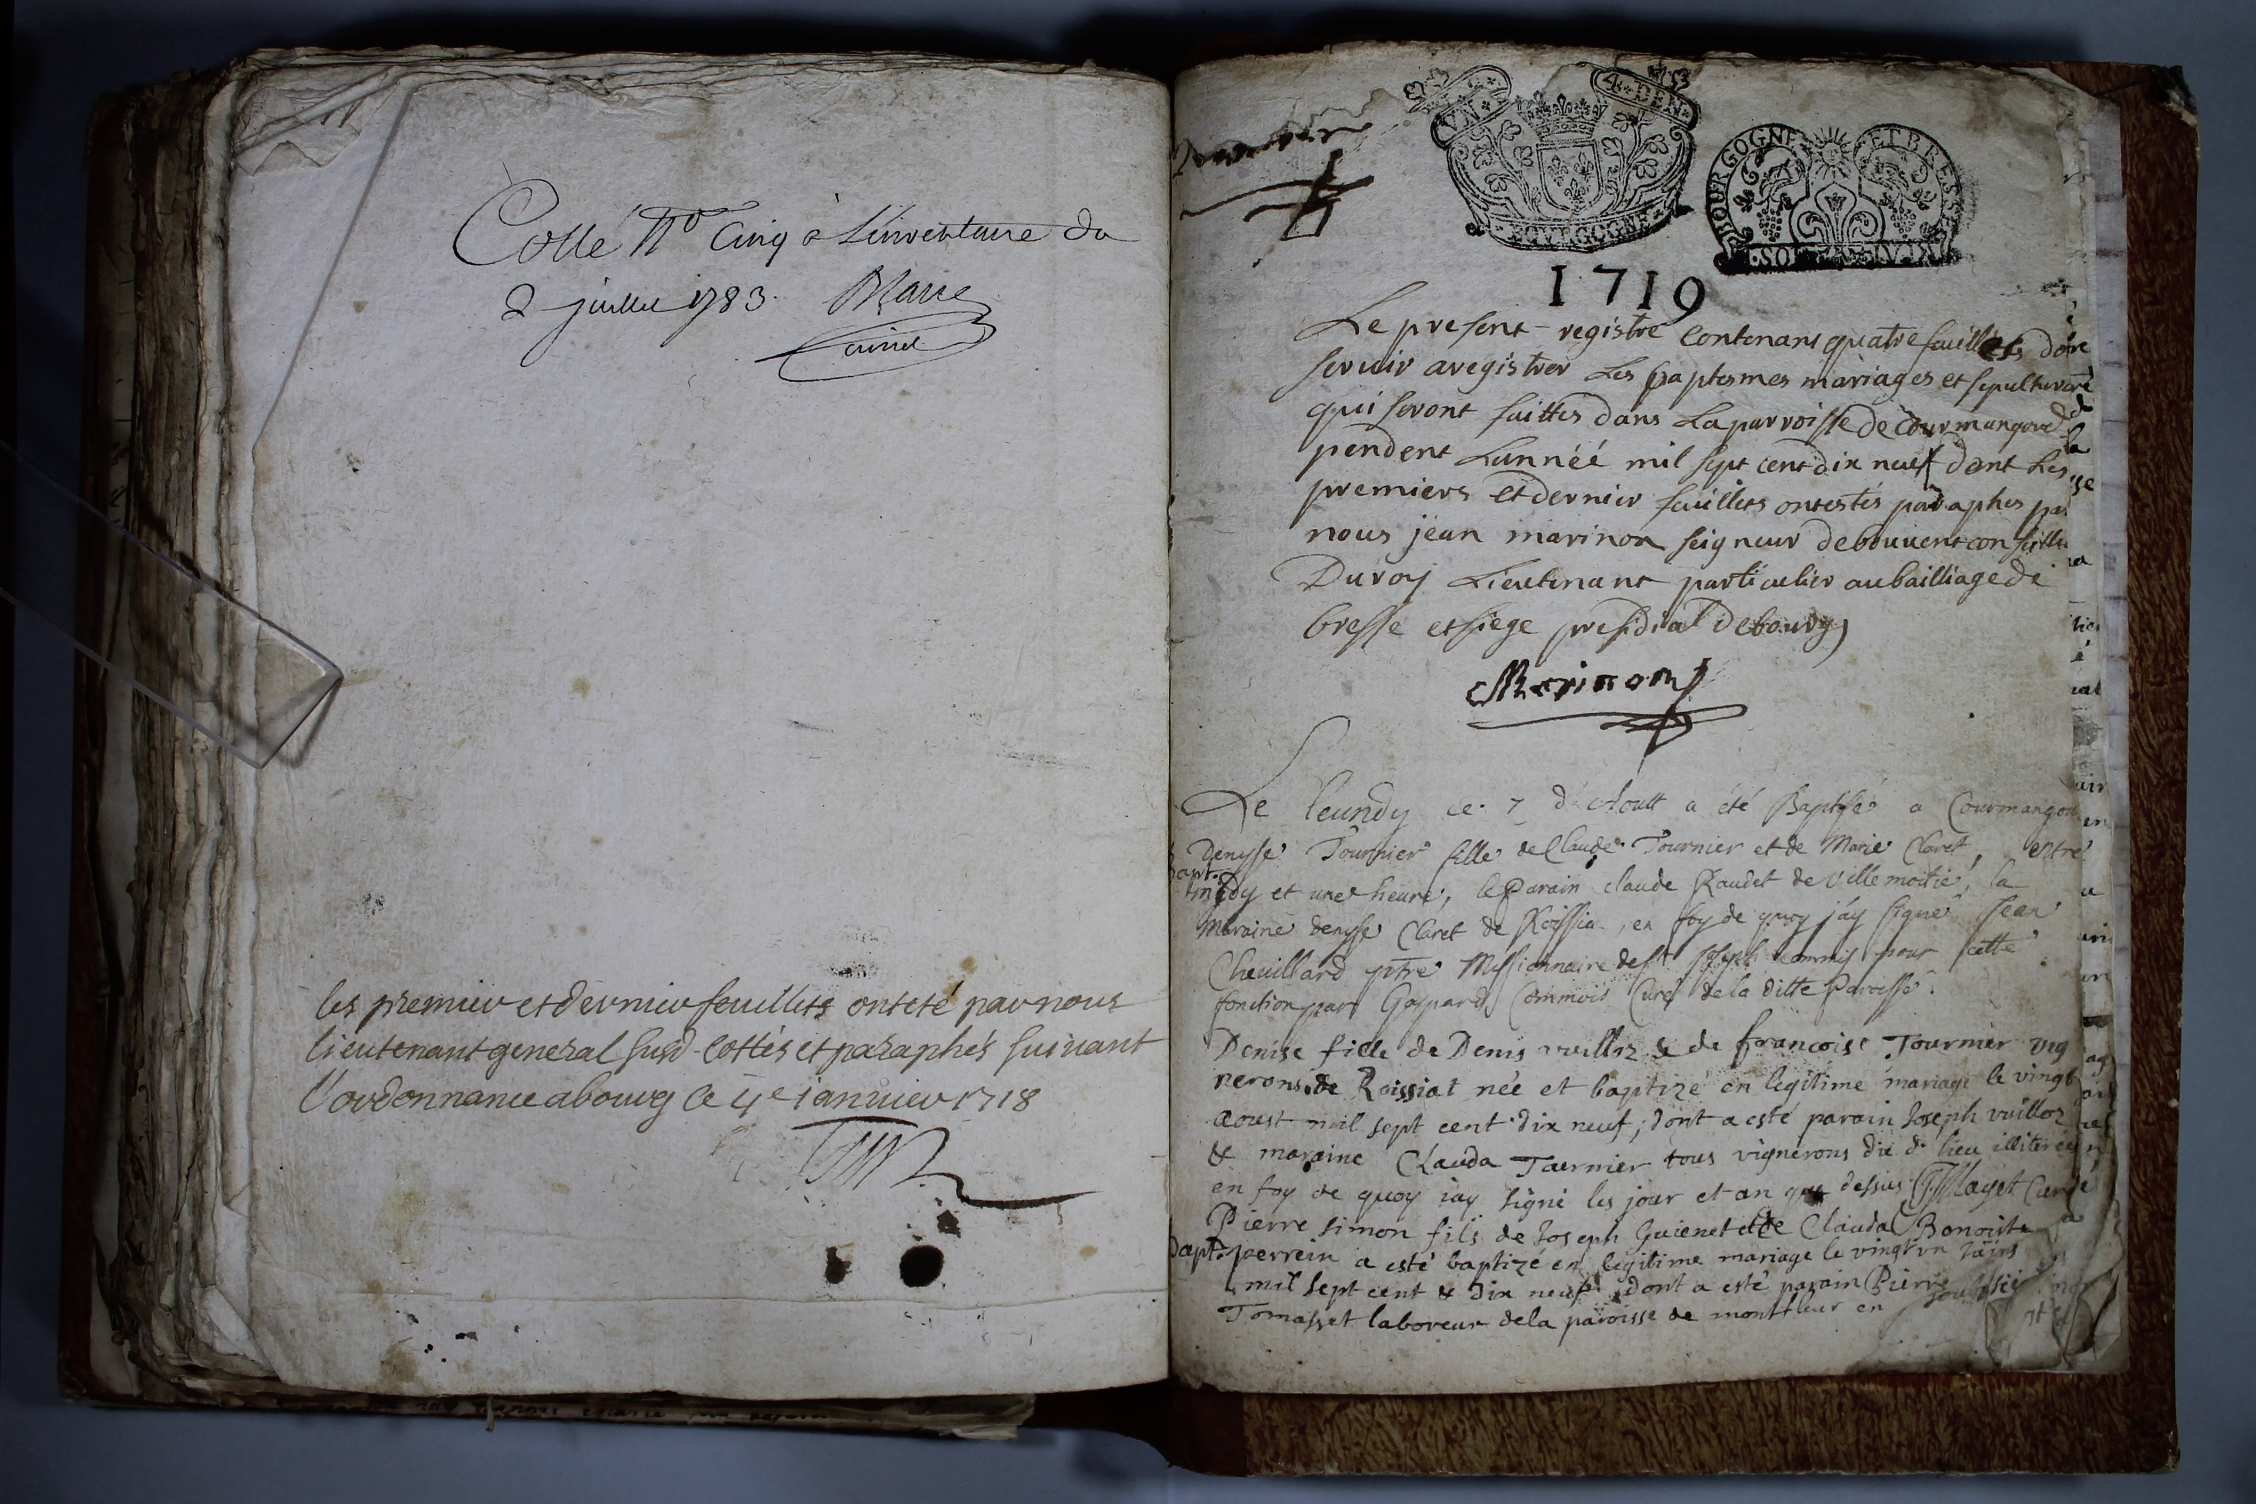 Cotté No Cinq a Linventaire du
2 juillet 1783.
les premier et dernier feuillets ont eté par nous
lieutenant general susd. cottés et paraphés suivant
l'ordonnance a bourg ce 4e januier 1718
UN
4. DEN.
BOURGOGNE
BOURGOGNE ET BRESSE
1719
Le present registre Contenant quatre feuillets doit
seruir a registrer Les baptesmes mariages et sepultures
qui seront faittes dans La parroisse de Courmangoux
pendent Lannéé mil sept cent dix neuf dont Les
premiers et dernier feuillets ont estés paraphes par
nous jean marinon seigneur de bouuent conseiller
Du roy Lieutenant particulier au bailliage de
bresse et siege presidial de bourg
Marinon
Le leundy ce 7 d'Aoutt a été Baptisé a Courmangou
Denysse Tournier fille de Claude Tournier et de Marie Claret, entre
bapt.
midy et une heure, le Parain claude Raudet de Villemoitié, la
Maraine denysse Claret de Roissia, en foy de quoy j'ay signé Jean
Cheuillard ptre Missionnaire de st Joseph commis pour cette
fonction par Gaspard Commois Curé de la ditte Paroisse.
Denise fille de Denis vuilloz & de francoise Tournier vig
nerons de Roissiat née et baptizé en legitime mariage le vingt
aoust mil sept cent dix neuf, dont a esté parain Joseph vuilloz
& maraine Clauda Tournier tous vignerons du d. lieu illiterez
en foy de quoy iay signé les jour et an que dessus Mayet Curé
Pierre simon fils de Joseph Guienet et de Clauda Benoiste
bapt. perrein a esté baptizé en legitime mariage le vingt un
mil sept cent & dix neuf, dont a esté parain Pierre
Tomasset laboreur de la paroisse de montfleur en